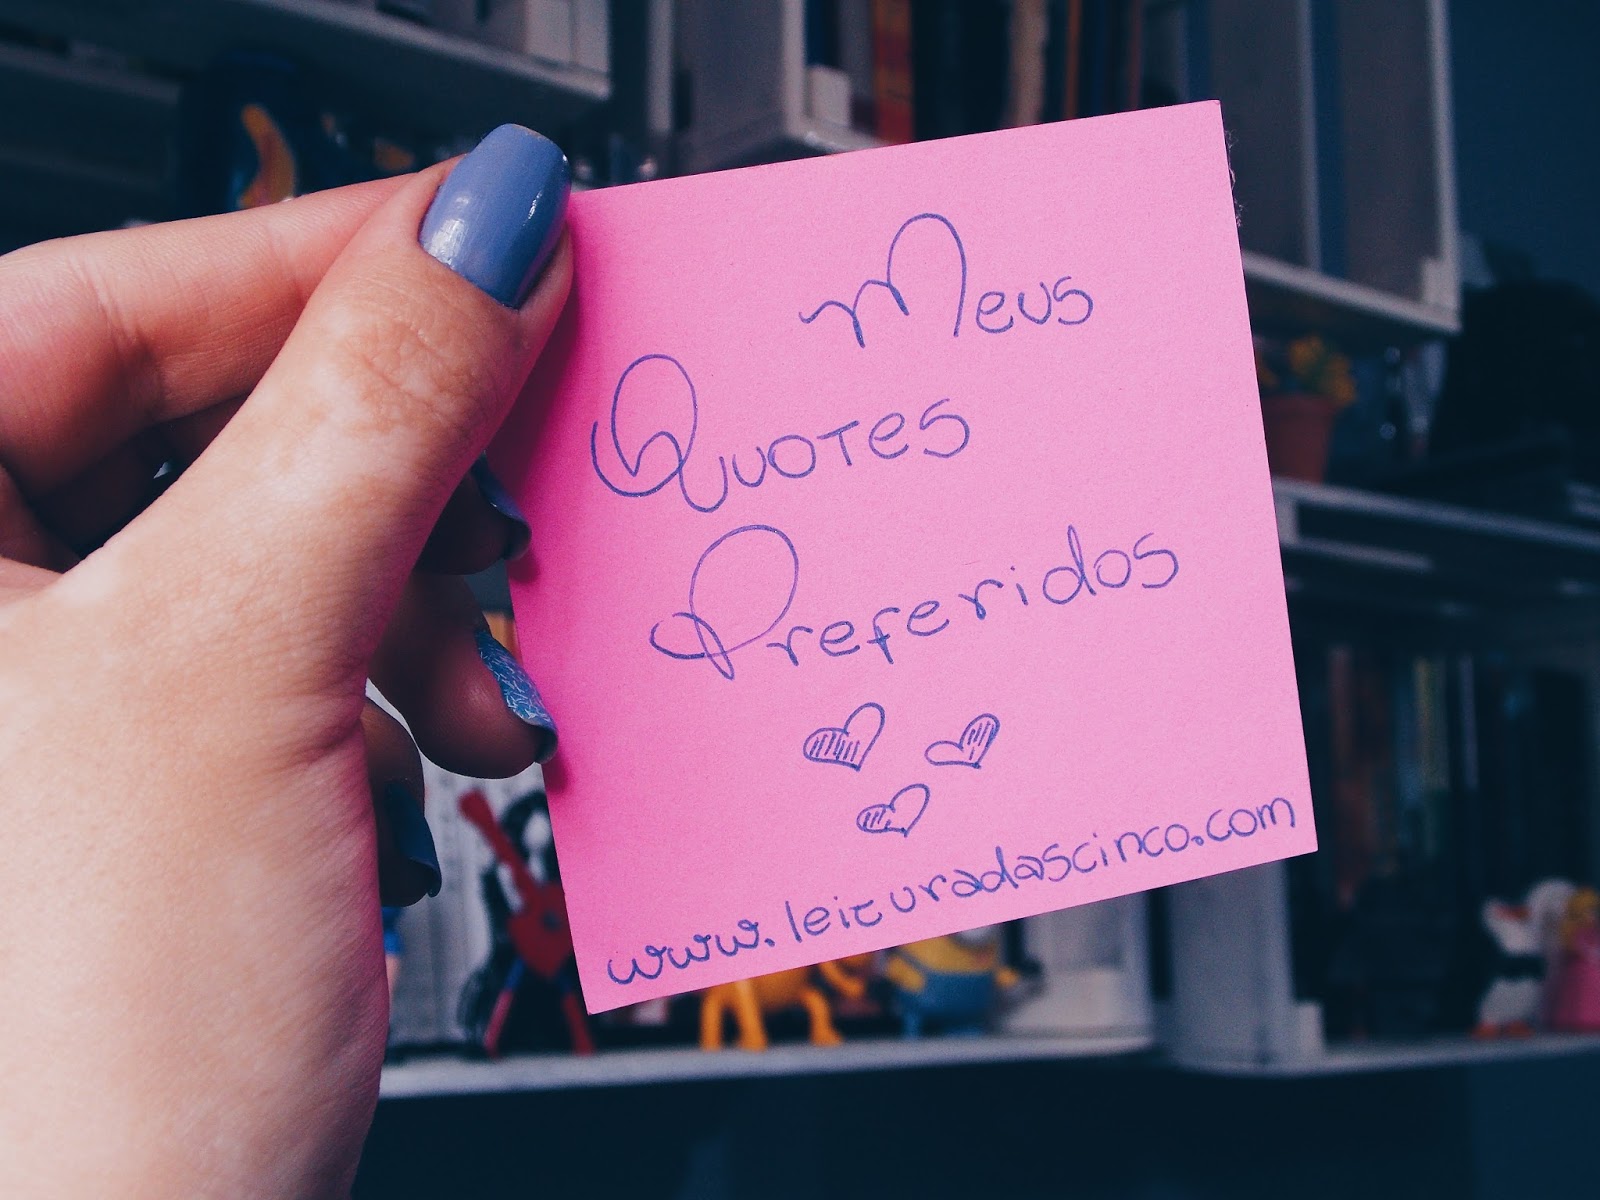 Meus
Quotes
Preferidos
www.leituradascinco.com